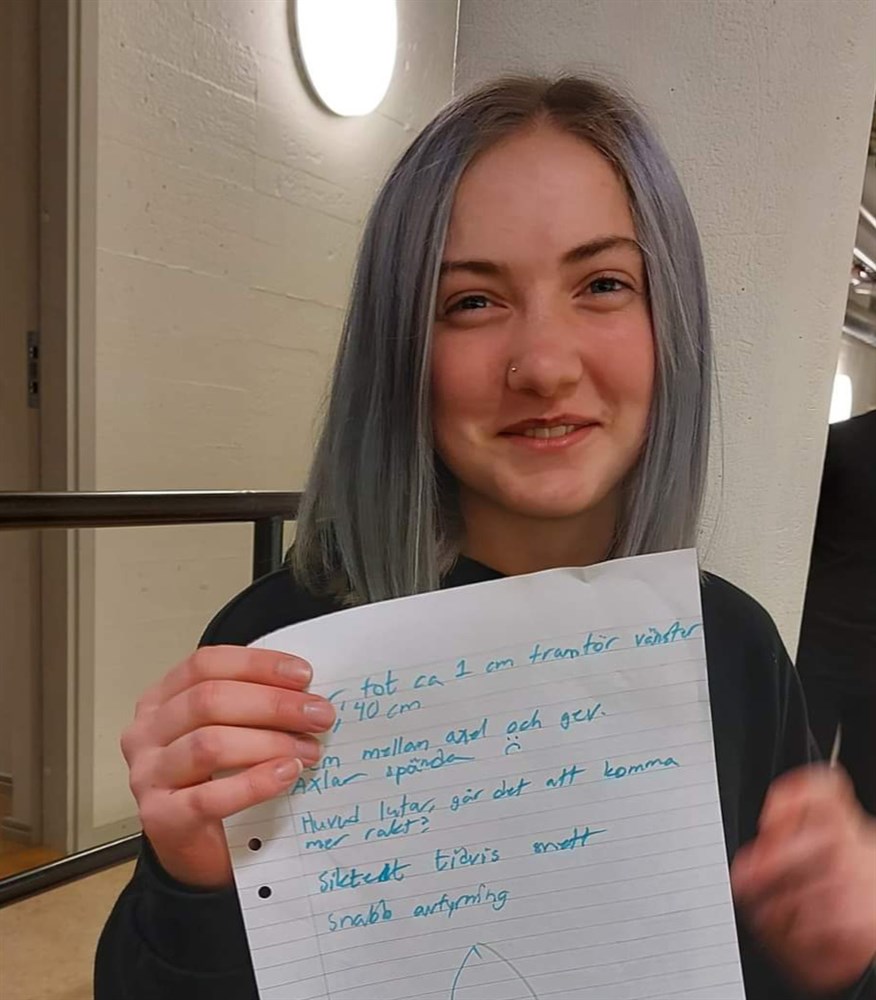 r fot ca 1 cm framför vänster
, 40 cm
m mellan axel och gev.
Axlar spända :(
Huvud lutar, går det att komma
mer rakt?
Siktedt tidvis snett
snabb avfyrning